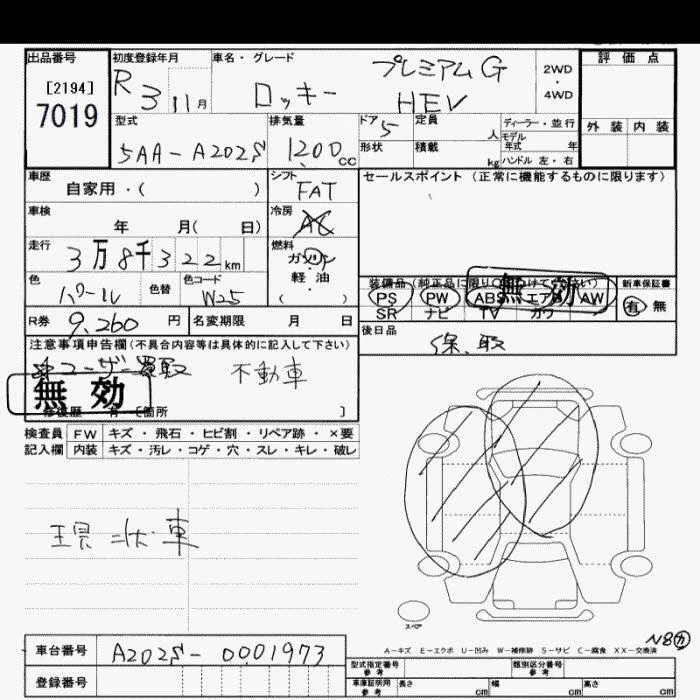 出品番号 初度登録年月 車名・グレード 評価点
[2194]
7019
R 3 11月 ロッキー プレミアムG HEV 2WD・4WD
外装 内装
型式 排気量 ドア 定員 人 ディーラー・並行
5AA-A202S 1200CC 5 モデル年式 年
形状 積載 kg ハンドル 左・右
車歴 シフト セールスポイント (正常に機能するものに限ります)
自家用・( ) FAT
車検 冷房
年 月( 日) AC
走行 3万8千322km 燃料
ガソリン
軽・油
( )
色 色替 色コード 装備品(純正品に限り○をつけて下さい) 新車保証書
パール W25 PS PW ABS エアB AW 有 無
無効
SR ナビ TV カワ
R券 9,260円 名変期限 月 日
後日品 保.取
注意事項申告欄(不具合内容等は具体的に記入して下さい)
※ユーザー買取 不動車
無効
修復歴 有・〔箇所 〕
検査員 FW キズ・飛石・ヒビ割・リペア跡・×要
記入欄 内装 キズ・汚レ・コゲ・穴・スレ・キレ・破レ
現状車
スペア
N8カ
A-キズ E-エクボ U-凹み W-補修跡 S-サビ C-腐食 XX-交換済
車台番号 A202S-0001973
登録番号
型式指定番号 参考 類別区分番号 参考
車庫証明用 参考 長さ cm 幅 cm 高さ cm